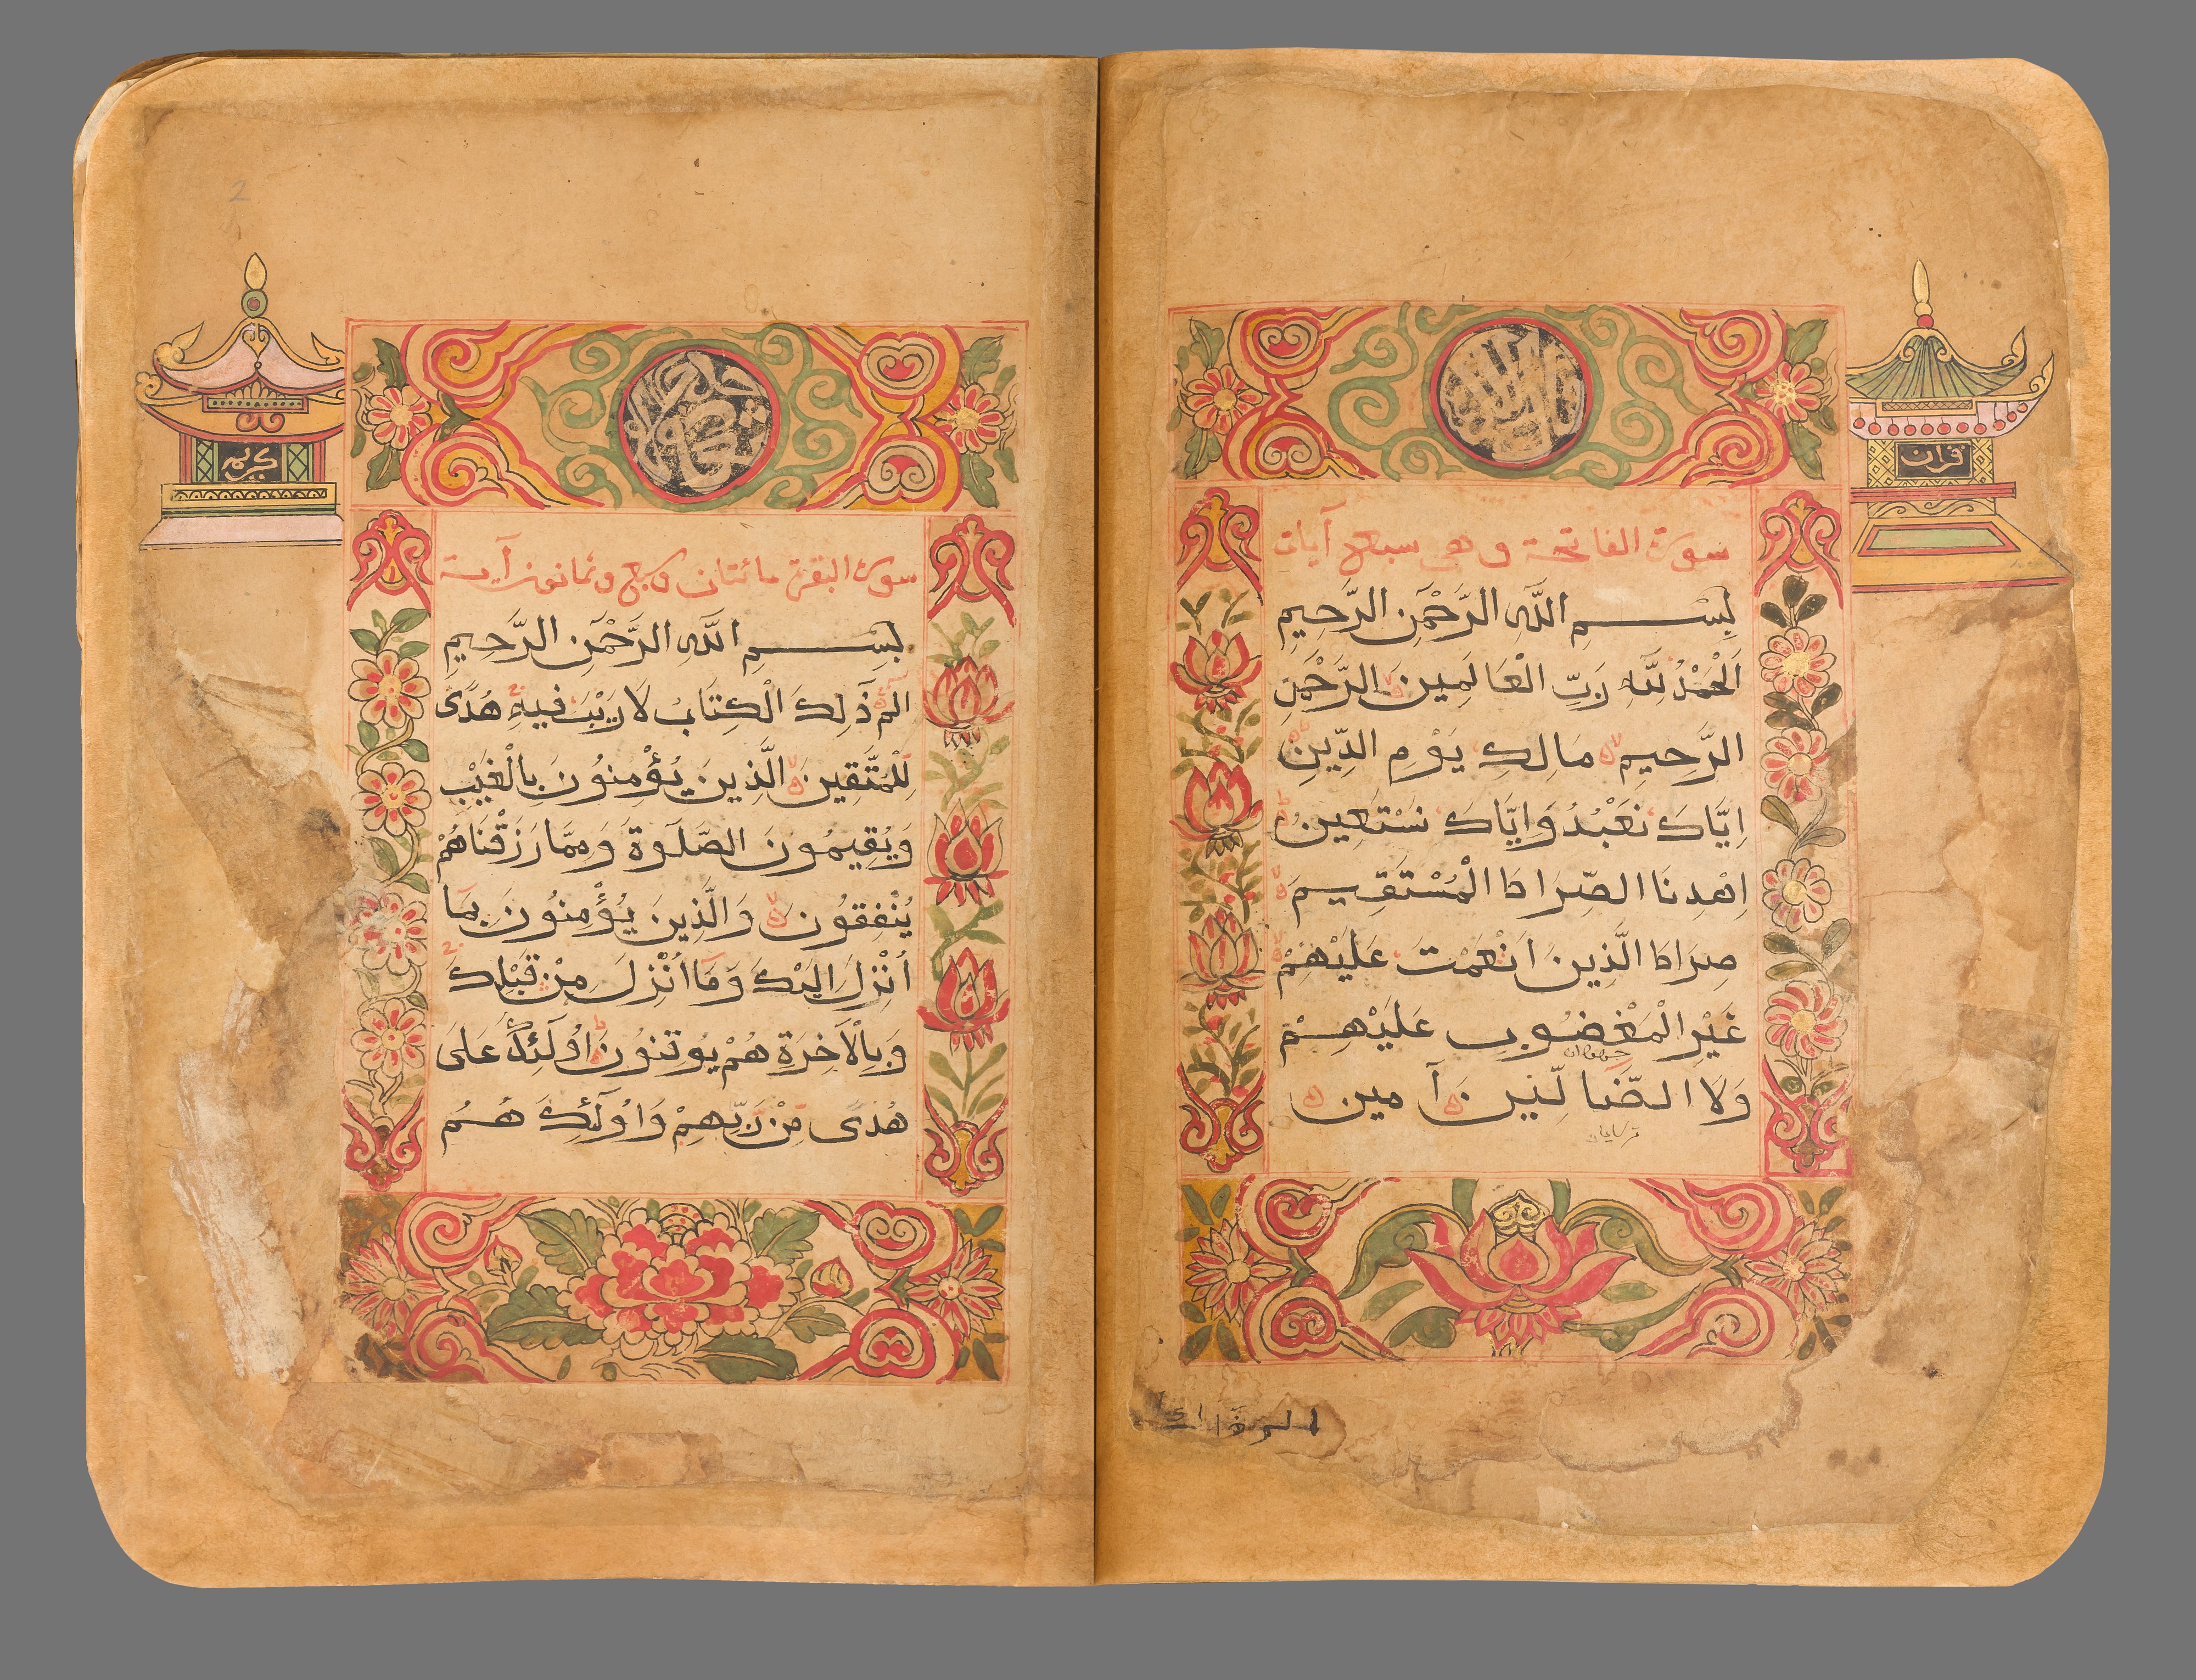 قران
سورة الفاتحة وهى سبع آيات
بِسْمِ اللَّهِ الرَّحْمَنِ الرَّحِيمِ
اَلْحَمْدُ لِلَّهِ رَبِّ الْعَالَمِينَ الرَّحْمَنِ
الرَّحِيمِ مَالِكِ يَوْمِ الدِّينِ
اِيَّاكَ نَعْبُدُ وَاِيَّاكَ نَسْتَعِينُ
اِهْدِنَا الصِّرَاطَ الْمُسْتَقِيمَ
صِرَاطَ الَّذِينَ اَنْعَمْتَ عَلَيْهِمْ
غَيْرِ الْمَغْضُوبِ عَلَيْهِمْ
وَلَا الضَّالِّينَ آمين
كريم
سورة البقرة مائتان وسبع وثمانون آية
بِسْمِ اللَّهِ الرَّحْمَنِ الرَّحِيمِ
الم ذَلِكَ الْكِتَابُ لَا رَيْبَ فِيهِ هُدًى
لِلْمُتَّقِينَ الَّذِينَ يُؤْمِنُونَ بِالْغَيْبِ
وَيُقِيمُونَ الصَّلَوةَ وَمِمَّا رَزَقْنَاهُمْ
يُنْفِقُونَ وَالَّذِينَ يُؤْمِنُونَ بِمَا
اُنْزِلَ اِلَيْكَ وَمَا اُنْزِلَ مِنْ قَبْلِكَ
وَبِالْآخِرَةِ هُمْ يُوقِنُونَ اُولَئِكَ عَلَى
هُدًى مِنْ رَبِّهِمْ وَاُولَئِكَ هُمُ
2